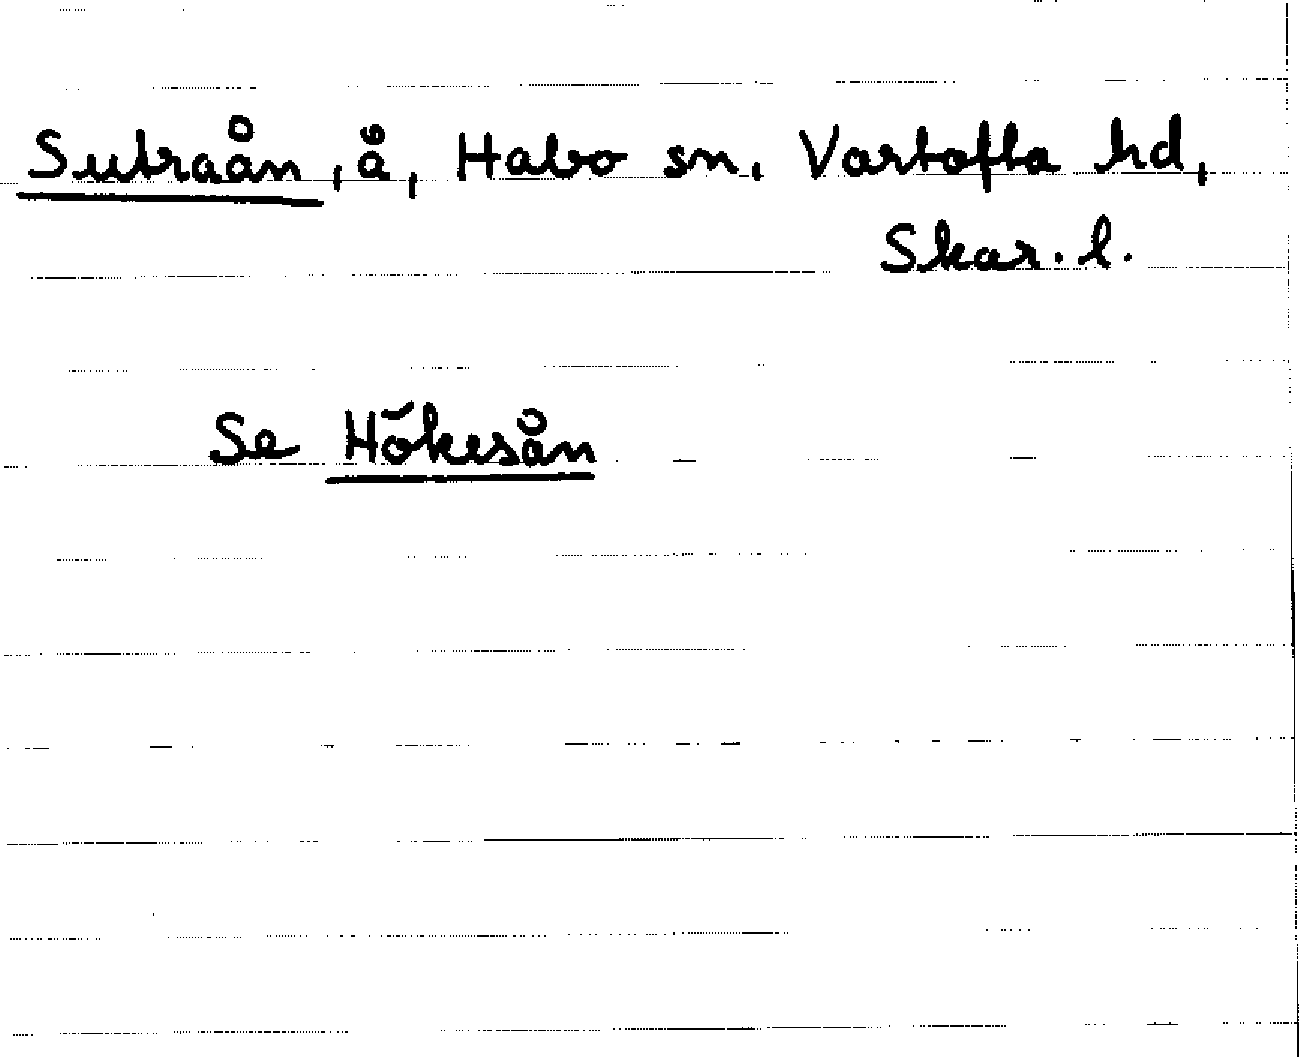 Sutraån, å, Habo sn, Vartofta hd,
Skar. l.
Se Hökesån